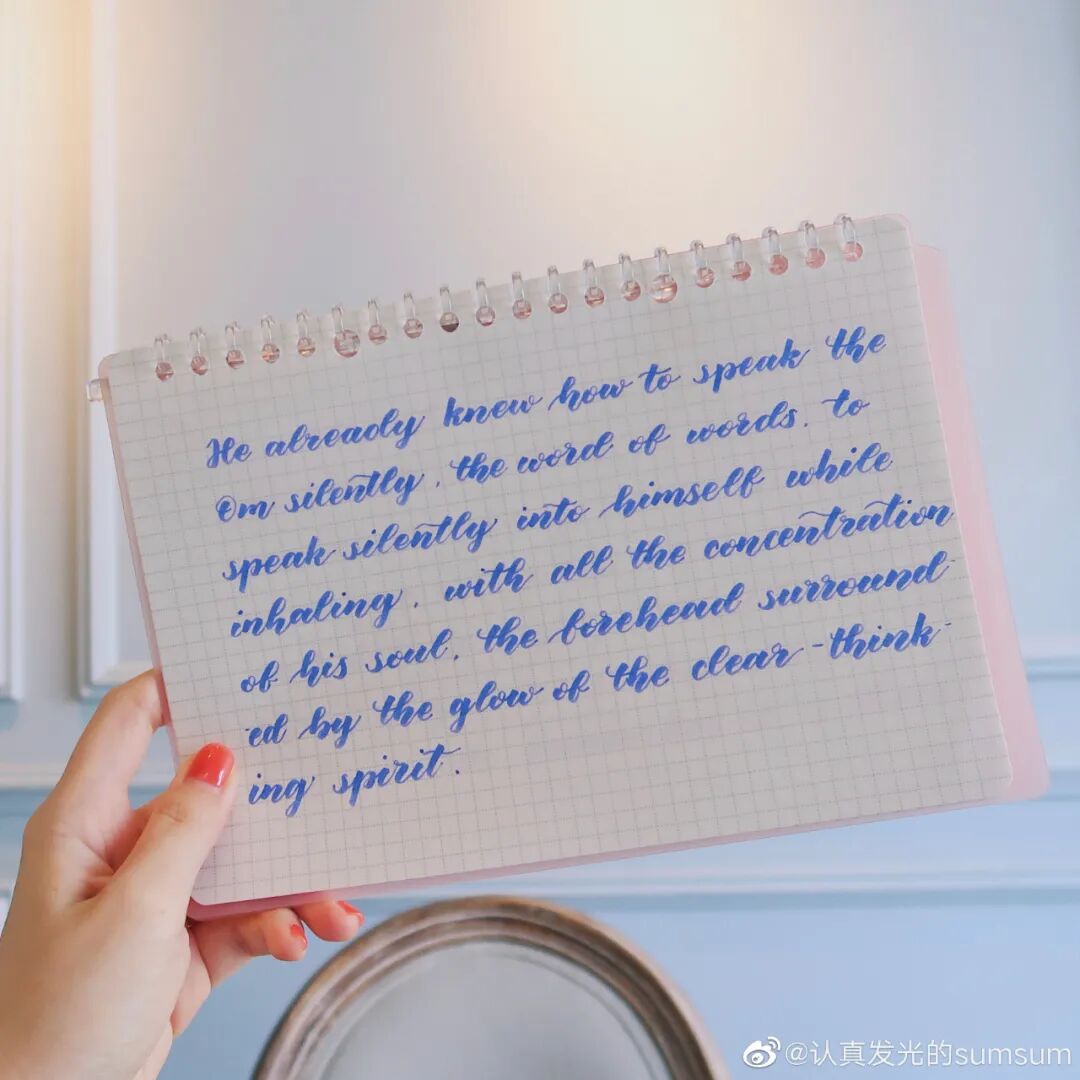 He already knew how to speak the
Om silently, the word of words, to
speak silently into himself while
inhaling, with all the concentration
of his soul, the forehead surround-
ed by the glow of the clear-think-
ing spirit.
@认真发光的sumsum